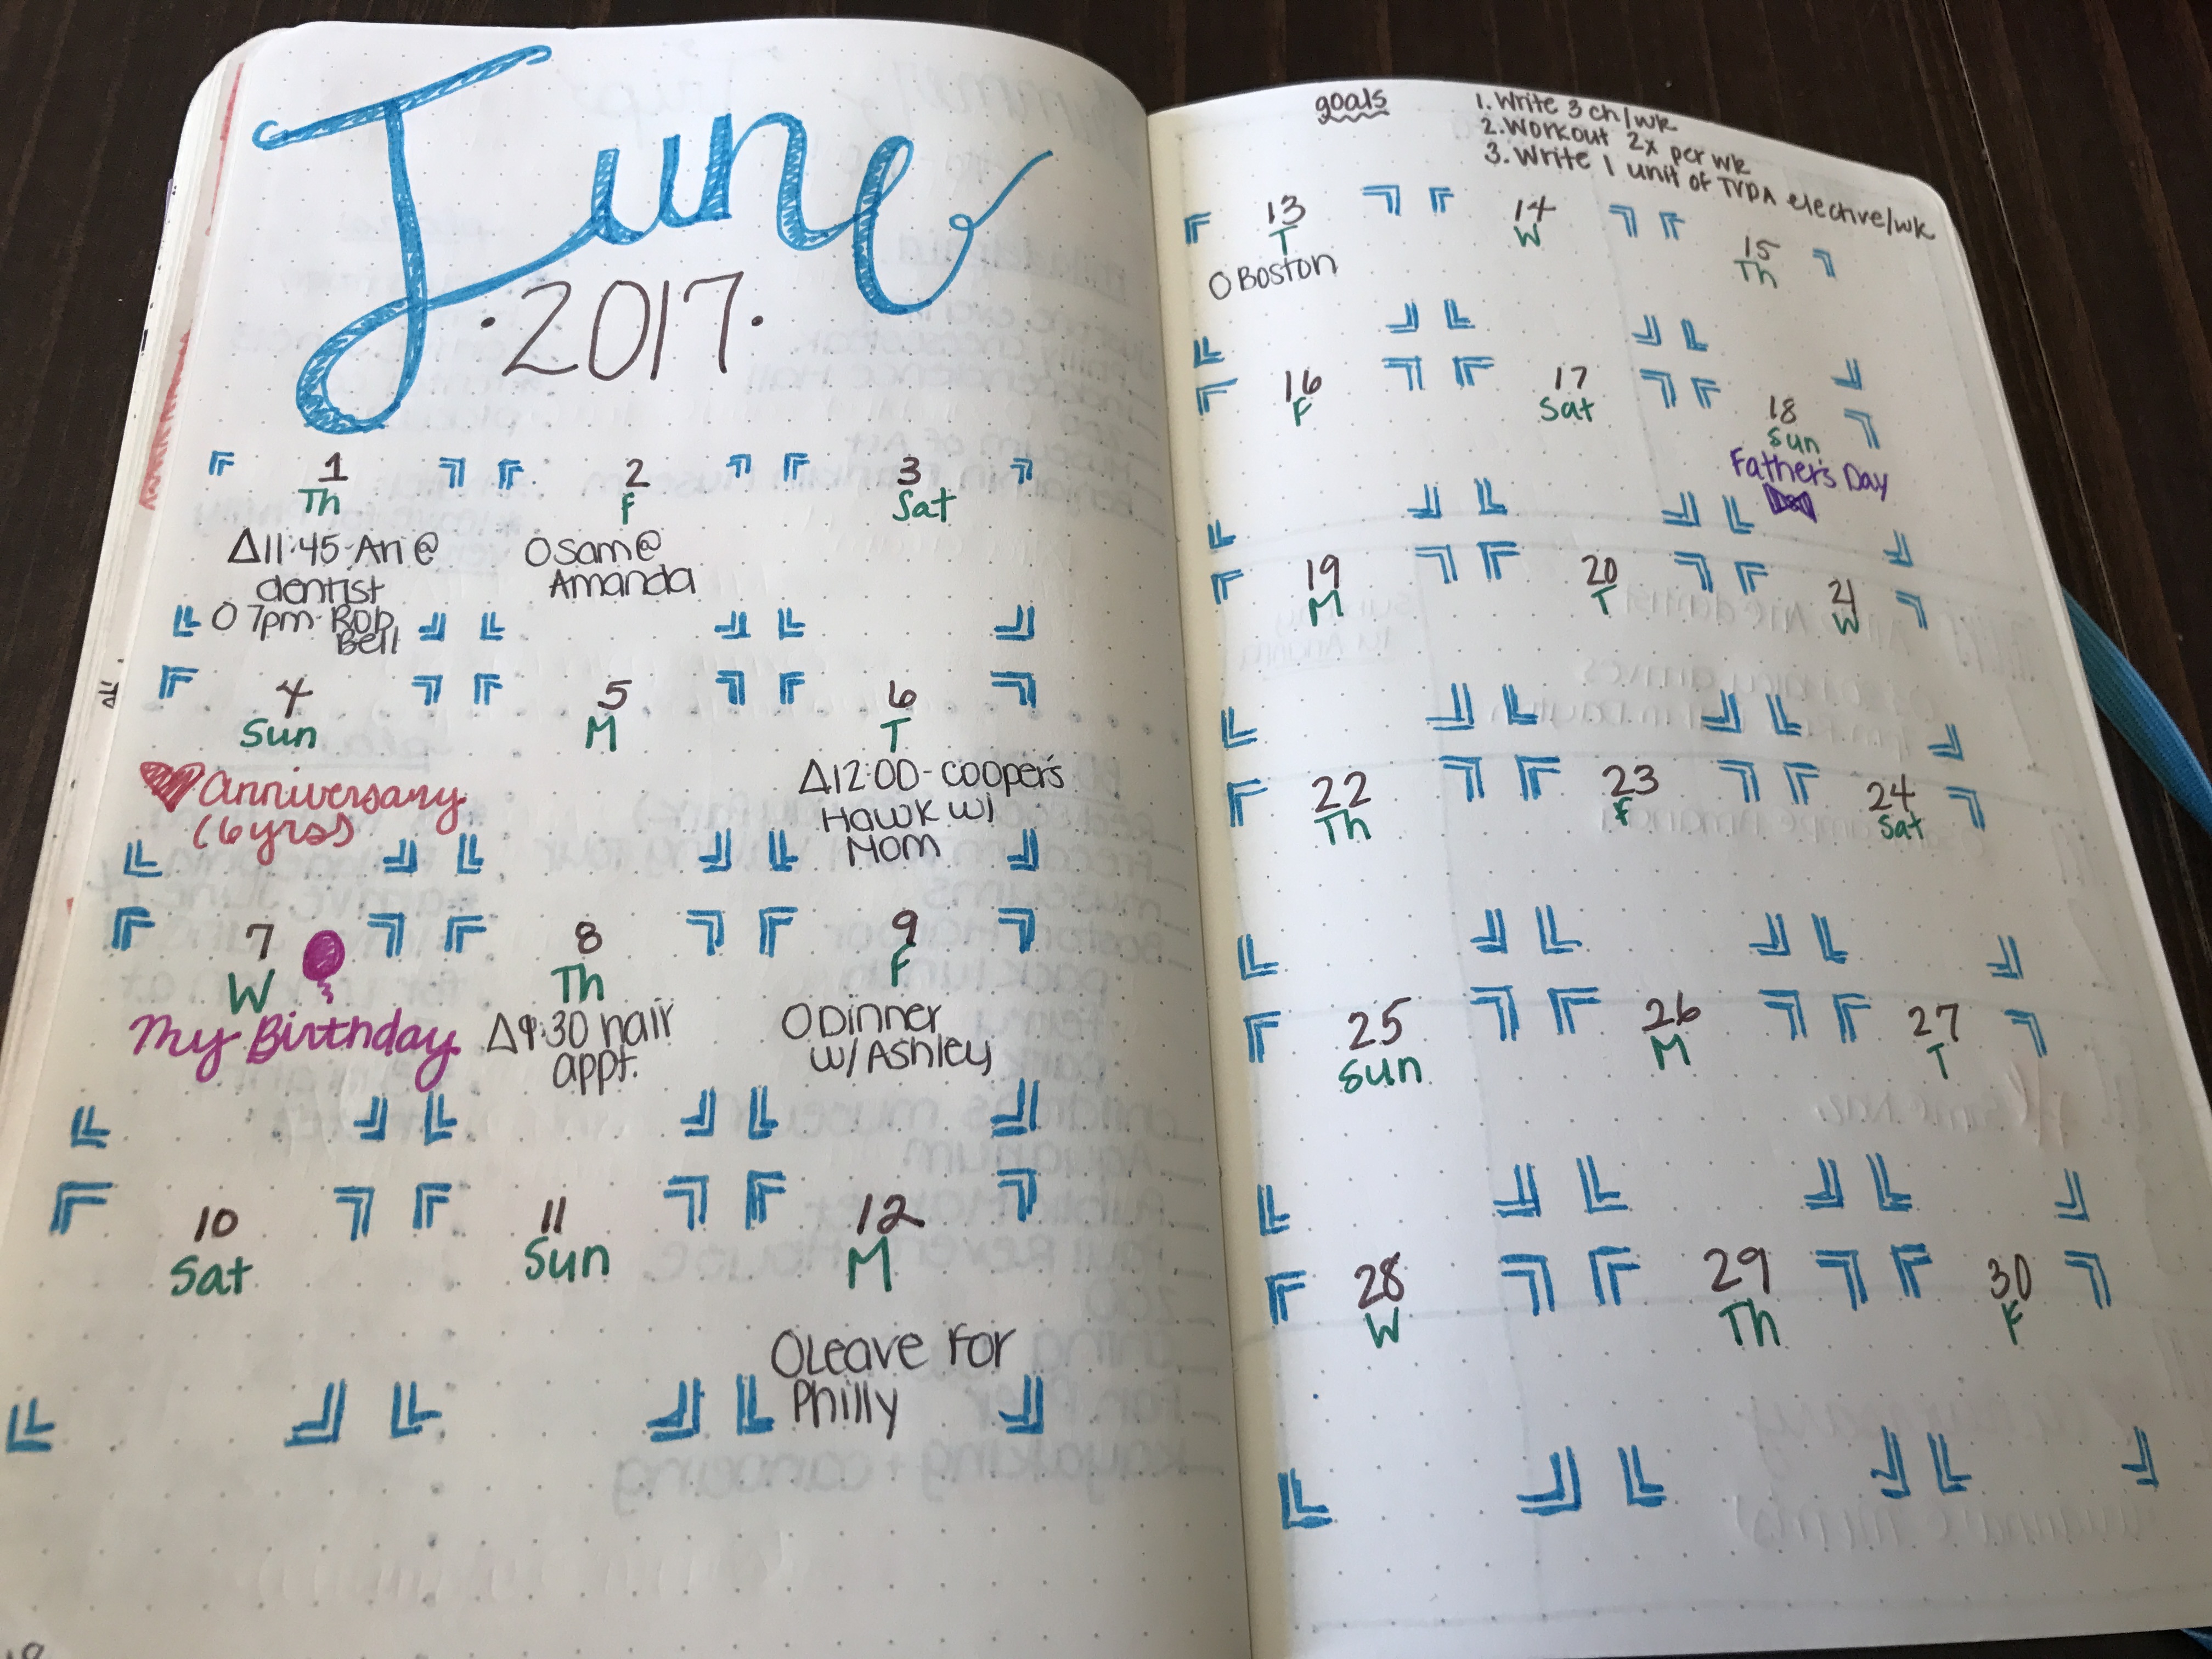 June
·2017·
1
Th
Δ11:45-Ari @
dentist
O 7pm-Rob
Bell
2
F
O Sam@
Amanda
3
Sat
4
Sun
anniversary
(6yrs)
5
M
6
T
Δ12:00-Cooper's
Hawk w/
Mom
7
W
My Birthday
8
Th
Δ9:30 hair
appt.
9
F
O Dinner
w/Ashley
10
Sat
11
Sun
12
M
O Leave for
Philly
goals
1. Write 3 ch/wk
2. Workout 2x per wk
3. Write 1 unit of elective/wk
13
T
O Boston
14
W
15
Th
16
F
17
Sat
18
Sun
Father's Day
19
M
20
T
21
W
22
Th
23
F
24
Sat
25
Sun
26
M
27
T
28
W
29
Th
30
F